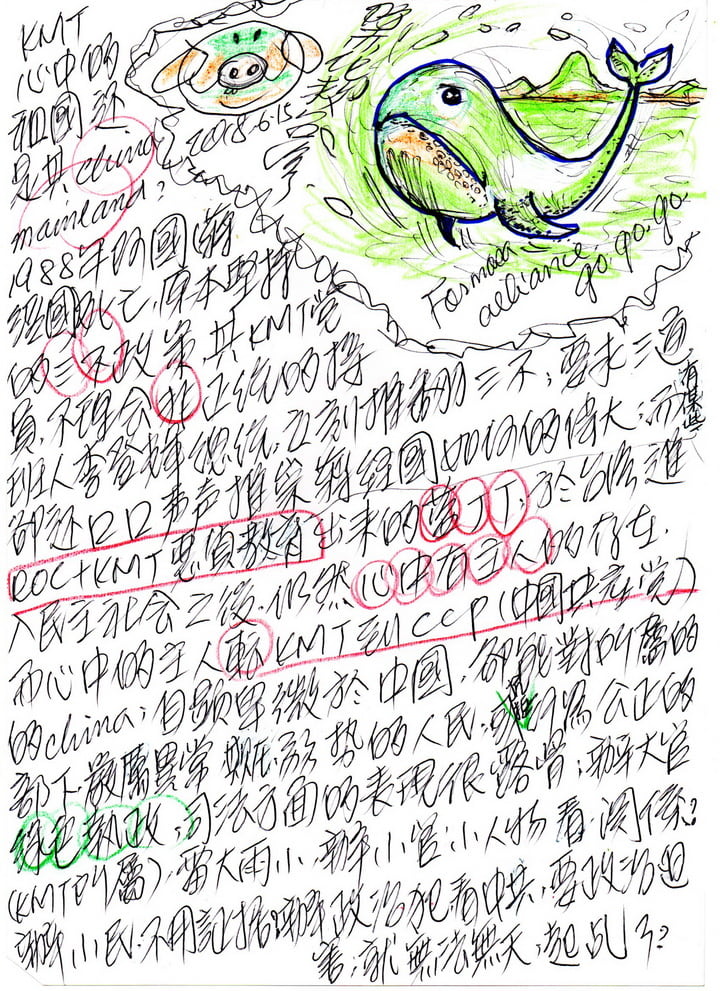 KMT
心中的
祖國還
是共china
mainland?
2018-6-15
Formosa
alliance go.go.go.
1988年 國 蔣
經國死亡,原本堅持
的三不政策,其KMT党
員,不理會非正統的接
班人李登輝總統,立刻推翻三不,要求三通
卻还口口声声推崇蔣經國如何的偉大;
ROC+KMT惡質教育出來的 於台湾進
入民主社会之後,仍然心中有主人的存在,
而心中的主人転KMT到CCP(中國共産党)
的china;自願卑微於中國,卻 對所屬的
部下嚴厲異常 势的人民, 公正的
綠色執政,司法方面的表現很露骨;辦大官
(KMT所屬),雷大雨小,辦小官;小人物看関係?
辦小民,不用証据?辦政治犯看中共,要政治迫
害;就無法無天,起乩了?